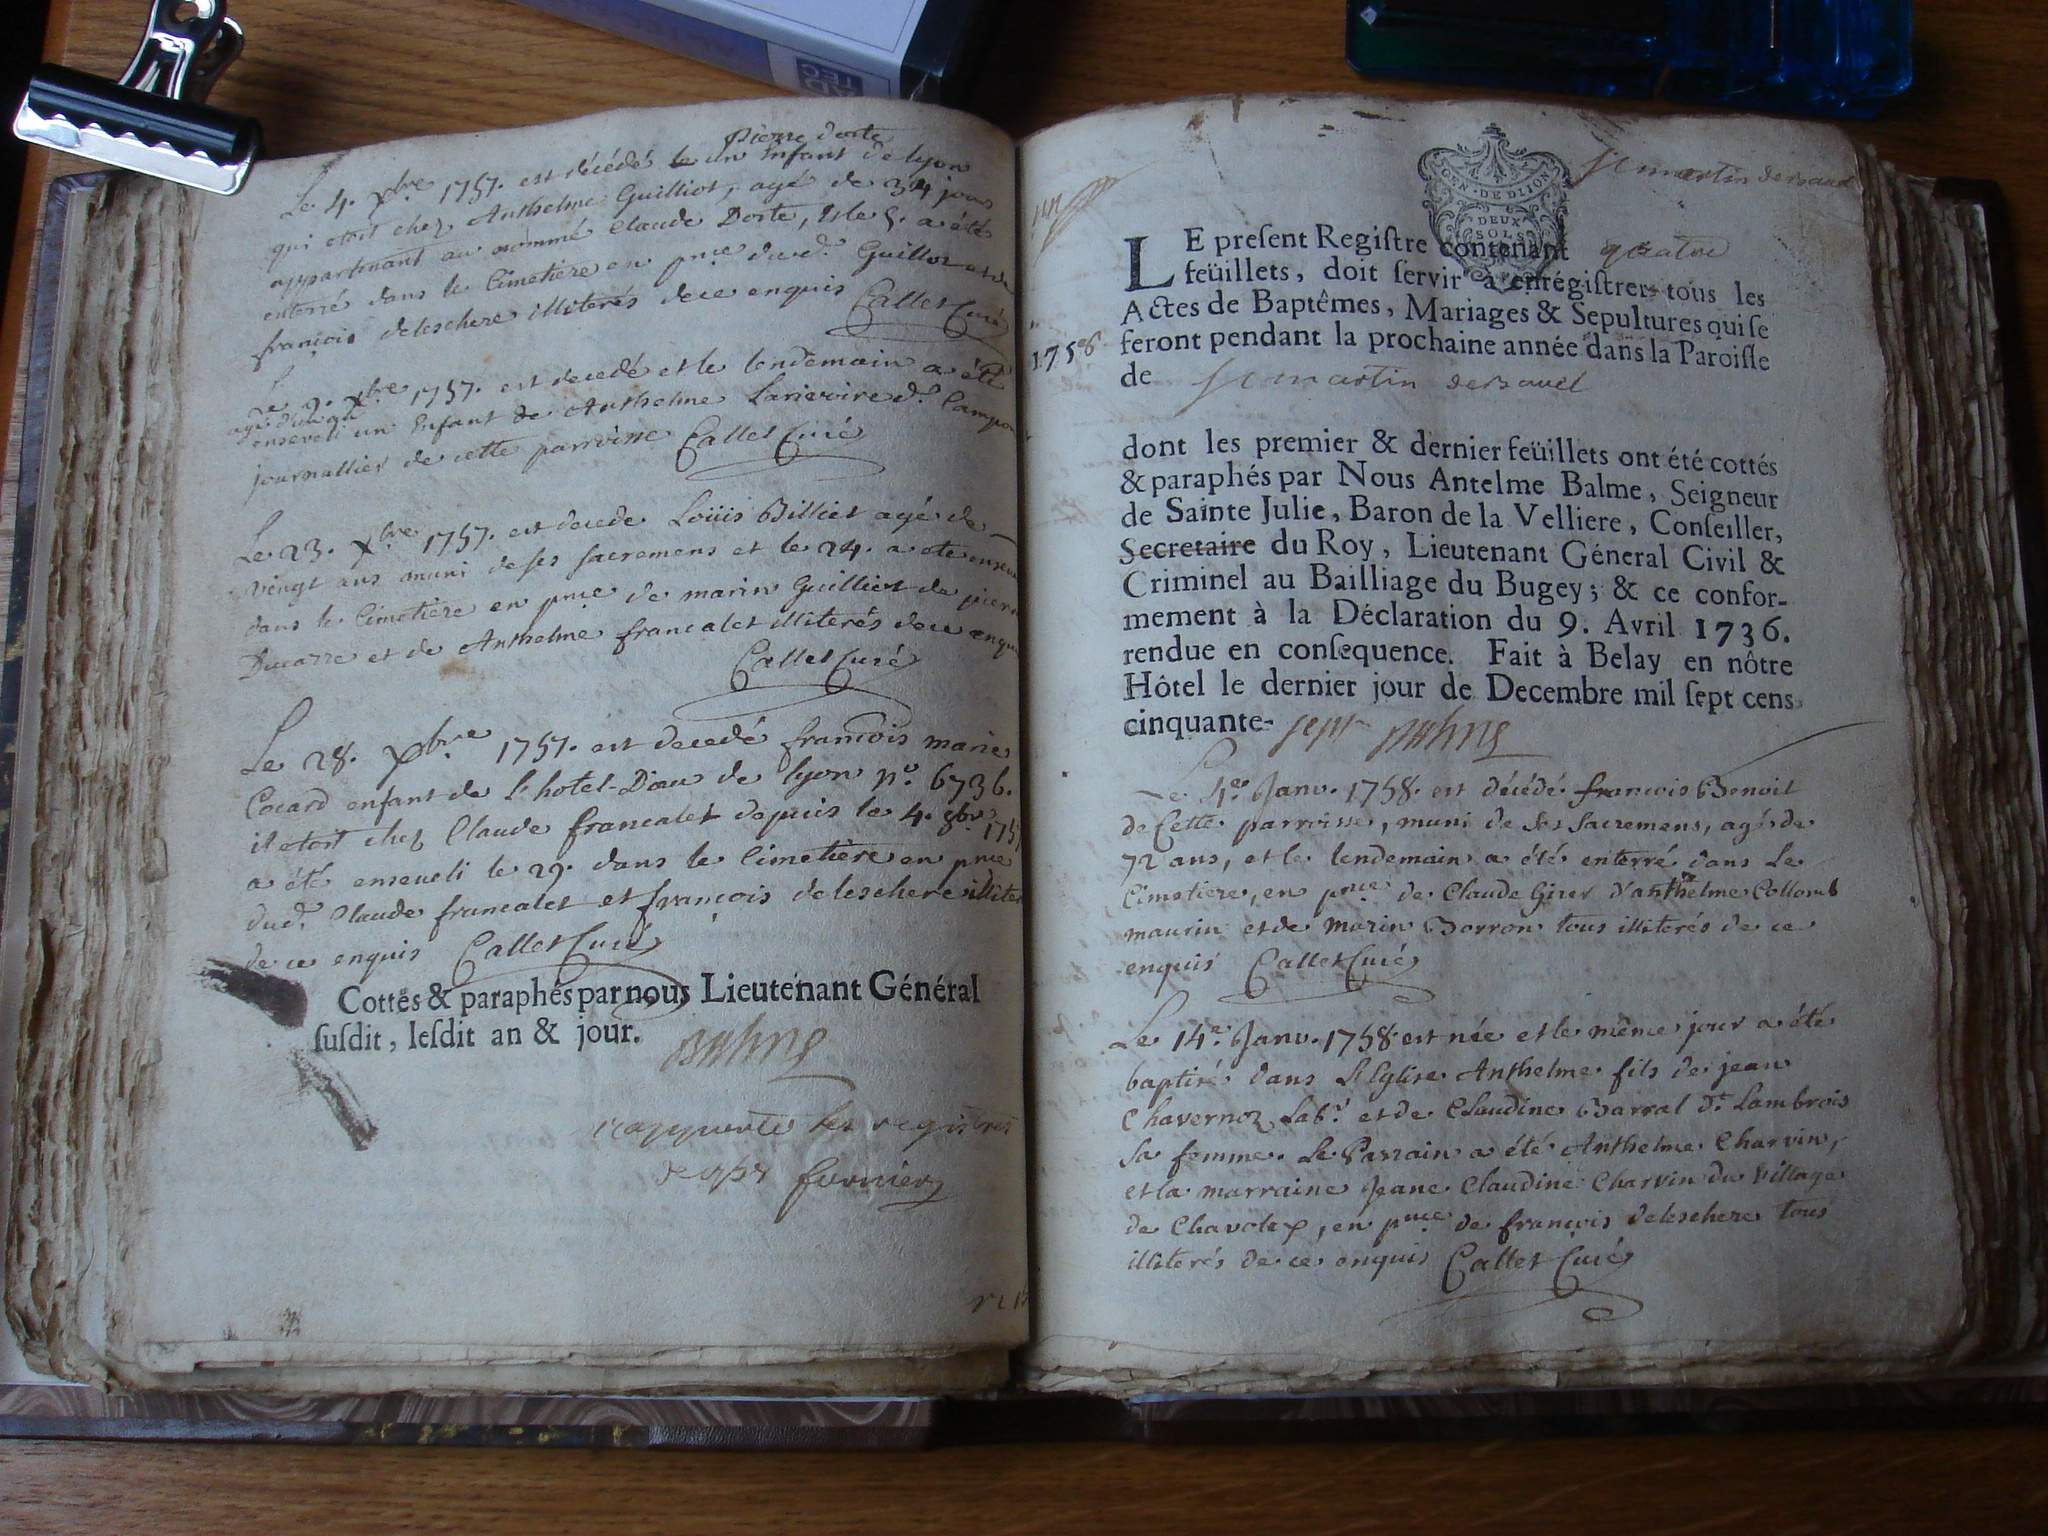 Pierre Dorte
Le 4. Xbre 1757. est décédé le un Enfant de lyon
qui etoit chez Anthelme Guilliot, agé de 34 jours
appartenant au nommé Claude Dorte, & le 5. a été
enterré dans le Cimetiere en pnce dud. Guilliot et de
françois deleschere illiterés de ce enquis Callet Curé
Le 9. Xbre 1757. est decedé et le lendemain a été
agé d'un an
enseveli un Enfant de Anthelme Larivoire d.
journallier de cette parroisse Callet Curé
Le 23. Xbre 1757. est decede Loüis Billiet agé de
vingt ans muni de ses sacremens et le 24. a ete
dans le Cimetiere en pnce de marin Guilliet de
Ducarre et de Anthelme francalet illiterés de ce
Callet Curé
Le 28. Xbre 1757. est decedé françois marie
Cocard enfant de l'hotel-Dieu de lyon no. 6736.
il etoit chez Claude francalet depuis le 4.
a été enseveli le 29. dans le Cimetiere en pnce
dud. Claude francalet et françois deleschere
de ce enquis Callet Curé
Cottés & paraphés par nous Lieutenant Général
susdit, lesdit an & jour.
Balme
les registres
furnier
DEUX
SOLS
GEN. DE DIJON
St martin de bavel
1758
LE present Registre contenant quatre
feüillets, doit servir à enrégistrer tous les
Actes de Baptêmes, Mariages & Sepultures qui se
feront pendant la prochaine année dans la Paroisse
de St martin de bavel
dont les premier & dernier feüillets ont été cottés
& paraphés par Nous Antelme Balme, Seigneur
de Sainte Julie, Baron de la Velliere, Conseiller,
Secretaire du Roy, Lieutenant Géneral Civil &
Criminel au Bailliage du Bugey; & ce confor-
mement à la Déclaration du 9. Avril 1736.
rendue en consequence. Fait à Belay en nôtre
Hôtel le dernier jour de Decembre mil sept cens
cinquante- sept Balme
Le Janv. 1758. est décédé francois Benoit
de Cette parroisse, muni de ses sacremens, agé de
72 ans, et le lendemain a été enterré dans Le
Cimetiere, en pnce de Claude Girer d'anthelme Collomb
maurin et de marin Borron tous illiterés de ce
enquis Callet Curé
Le 14e. Janv. 1758. est née et le même jour a été
baptisé dans L'Eglise Anthelme fils de jean
Chavernoz Labr. et de Claudine Barral de Lambrois
sa femme. Le Parrain a été Anthelme Charvin,
et la marraine Jeane Claudine Charvin du village
de Chavolex, en pnce de francois deleschere tous
illiterés de ce enquis Callet Curé